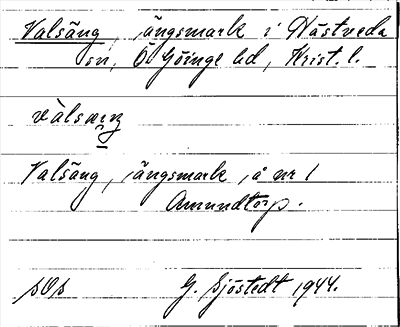 Valsäng, ängsmark i Hästveda
sn, Ö Göinge hd, Krist. l.
vàlsæŋ
Valsäng, ängsmark, å nr 1
Amundtorp.
SOS G. Sjöstedt 1944.